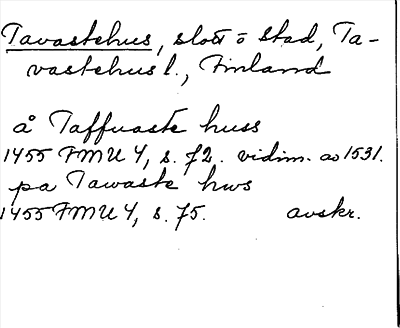 Tavastehus, slott o stad, Ta-
vastehus l., Finland
å Taffuaste huss
1455 FMU 4, s. 72. vidim. av 1531.
pa Tawaste hws
1455 FMU 4, s. 75. avskr.